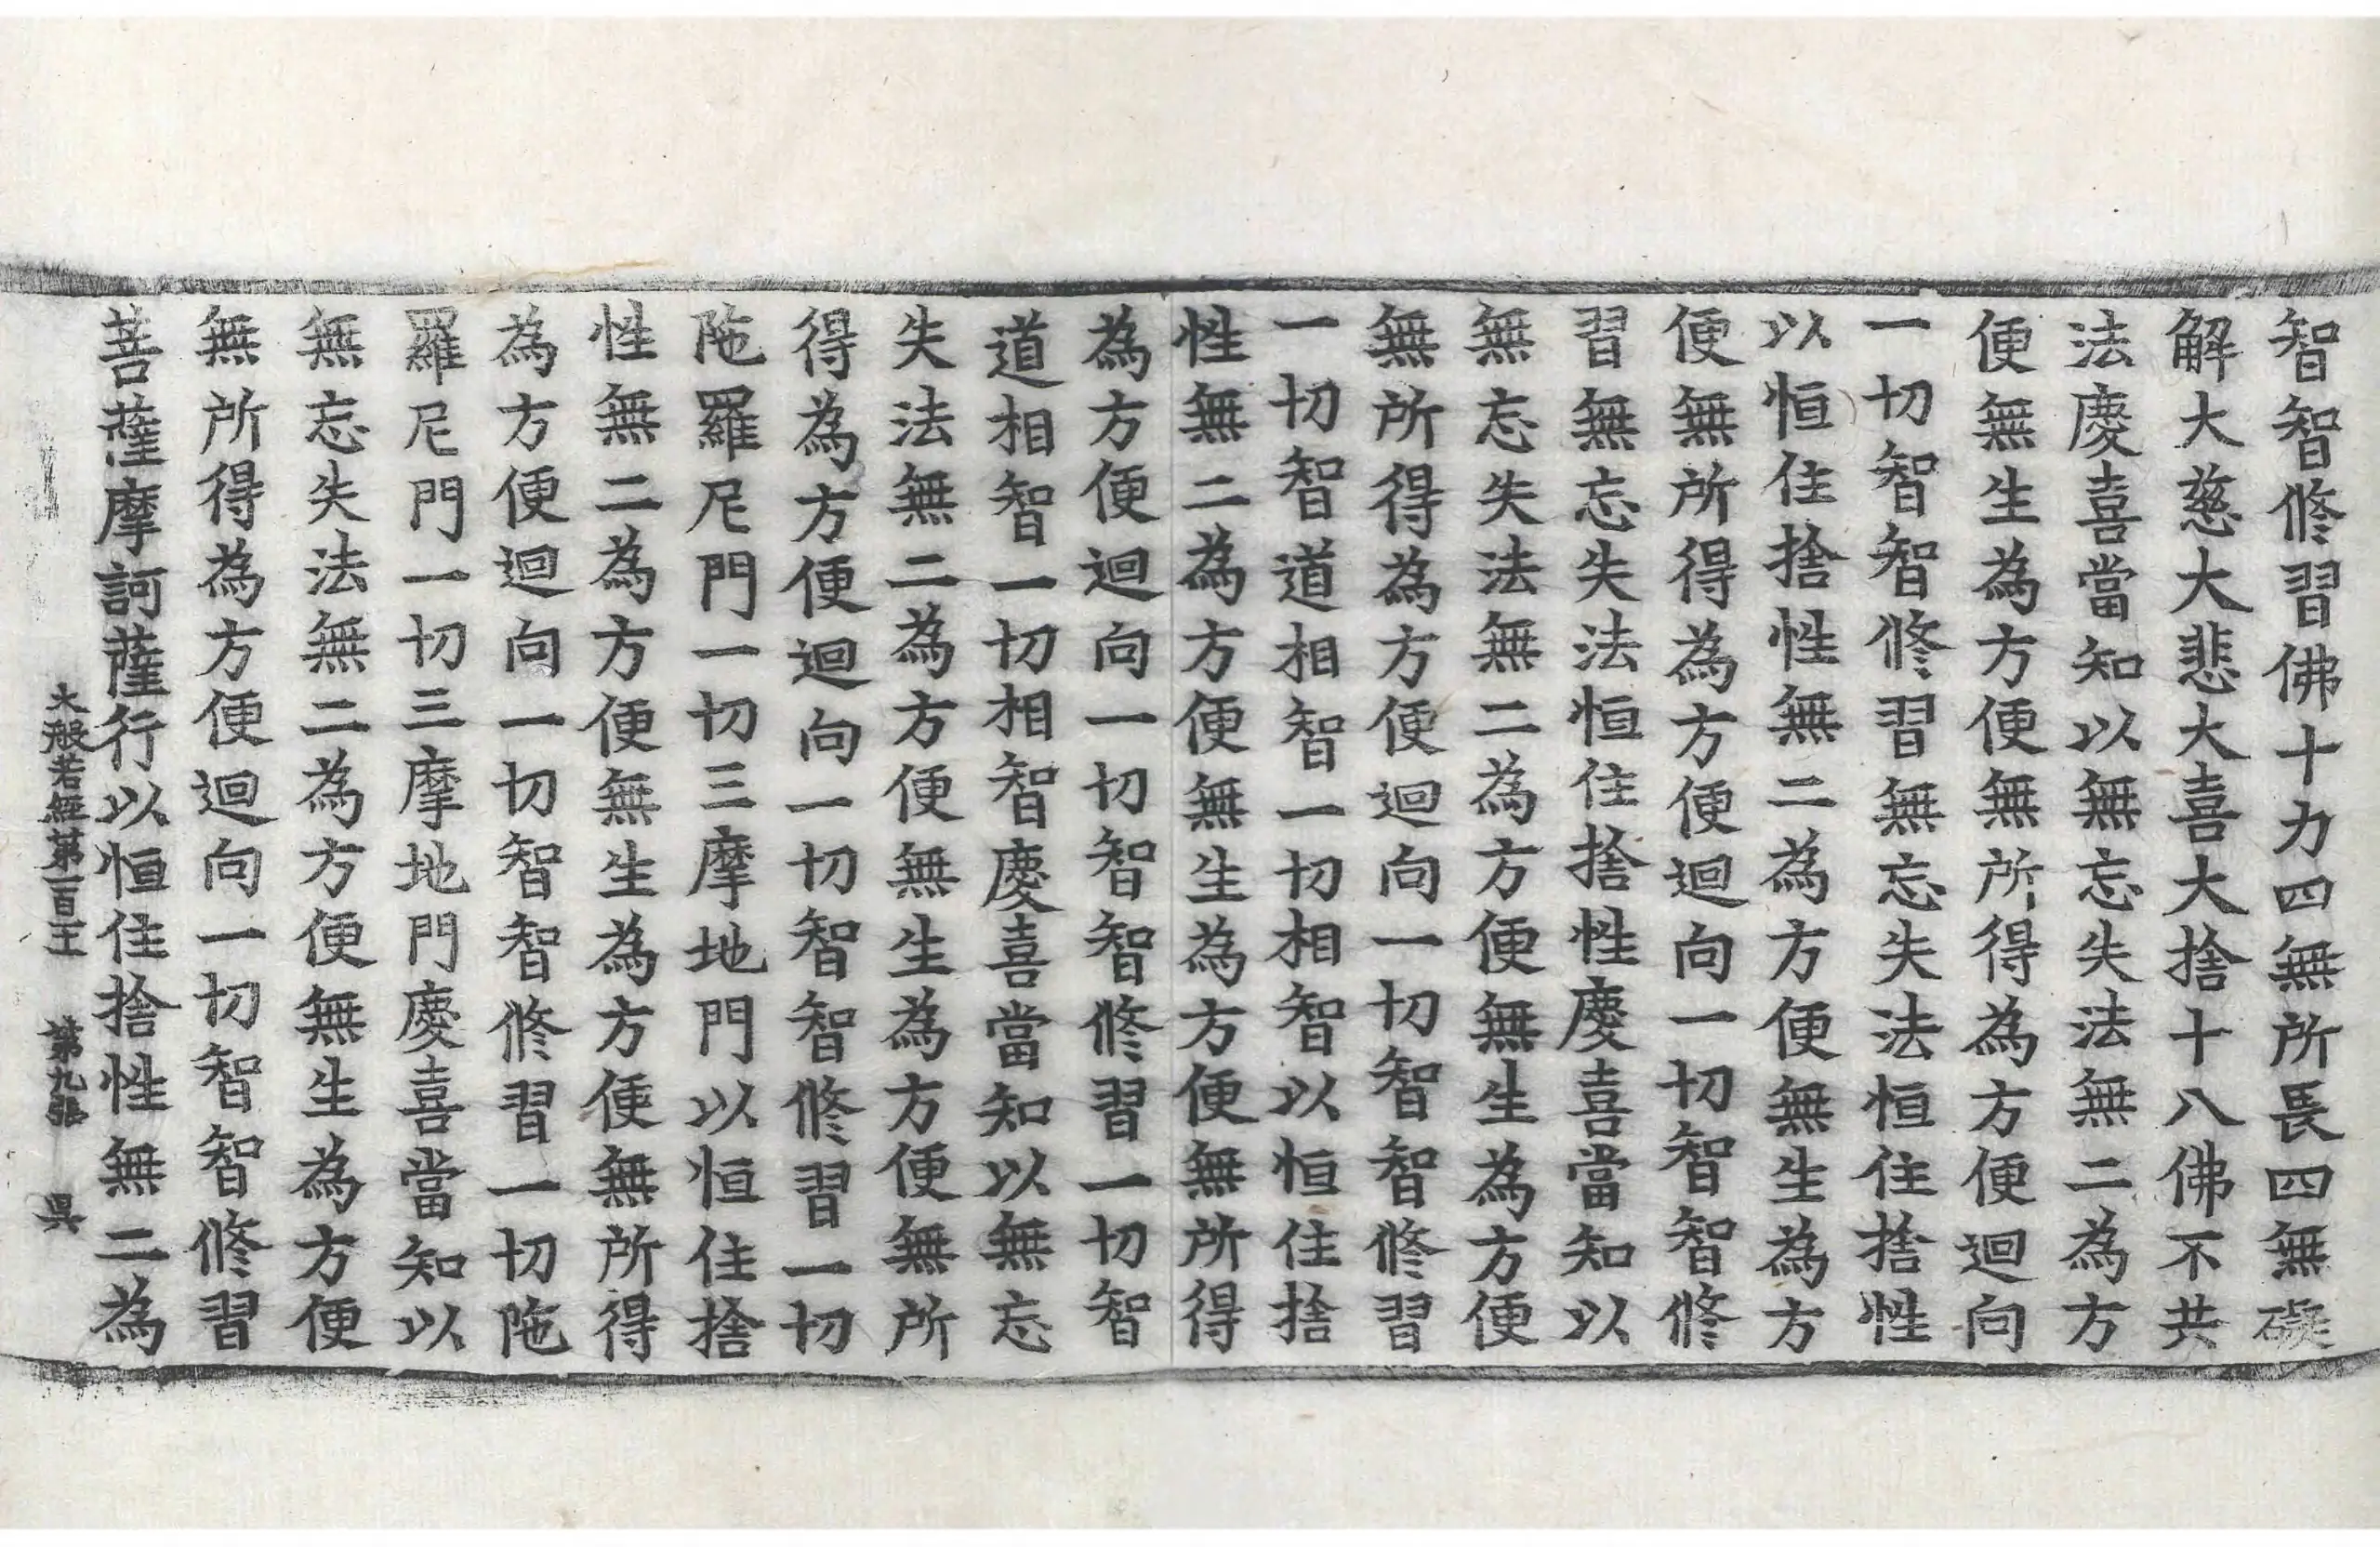 智智修習佛十力四無所長四無礙
解大慈大悲大喜大捨十八佛不共
法慶喜當知以無忘失法無二為方
便無生為方便無所得為方便迴向
一切智智修習無忘失法恒住捨性
以恒住捨性無二為方便無生為方
便無所得為方便迴向一切智智修
習無忘失法恒住捨性慶喜當知以
無忘失法無二為方便無生為方便
無所得為方便迴向一切智智修習
一切智道相智一切相智以恒住捨
性無二為方便無生為方便無所得
為方便迴向一切智智修習一切智
道相智一切相智慶喜當知以無忘
失法無二為方便無生為方便無所
得為方便迴向一切智智修習一切
陁羅尼門一切三摩地門以恒住捨
性無二為方便無生為方便無所得
為方便迴向一切智智修習一切陁
羅尼門一切三摩地門慶喜當知以
無忘失法無二為方便無生為方便
無所得為方便迴向一切智智修習
菩薩摩訶薩行以恒住捨性無二為
大般若經第一百十 第九張 昃